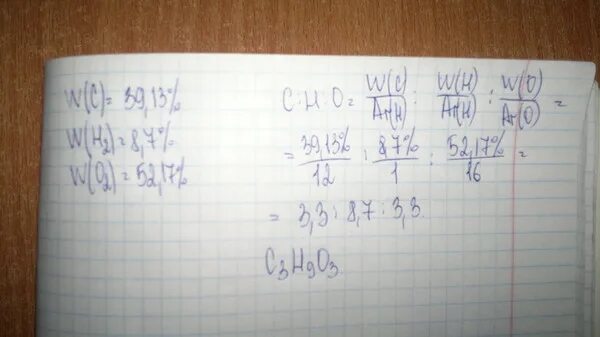 W(C) = 39,13%
W(H₂) = 8,7%
W(O₂) = 52,17%
C : H : O = W(C)/Ar(H) : W(H)/Ar(H) : W(O)/Ar(O) =
= 39,13%/12 : 8,7%/1 : 52,17%/16 =
= 3,3 : 8,7 : 3,3
C₃H₉O₃